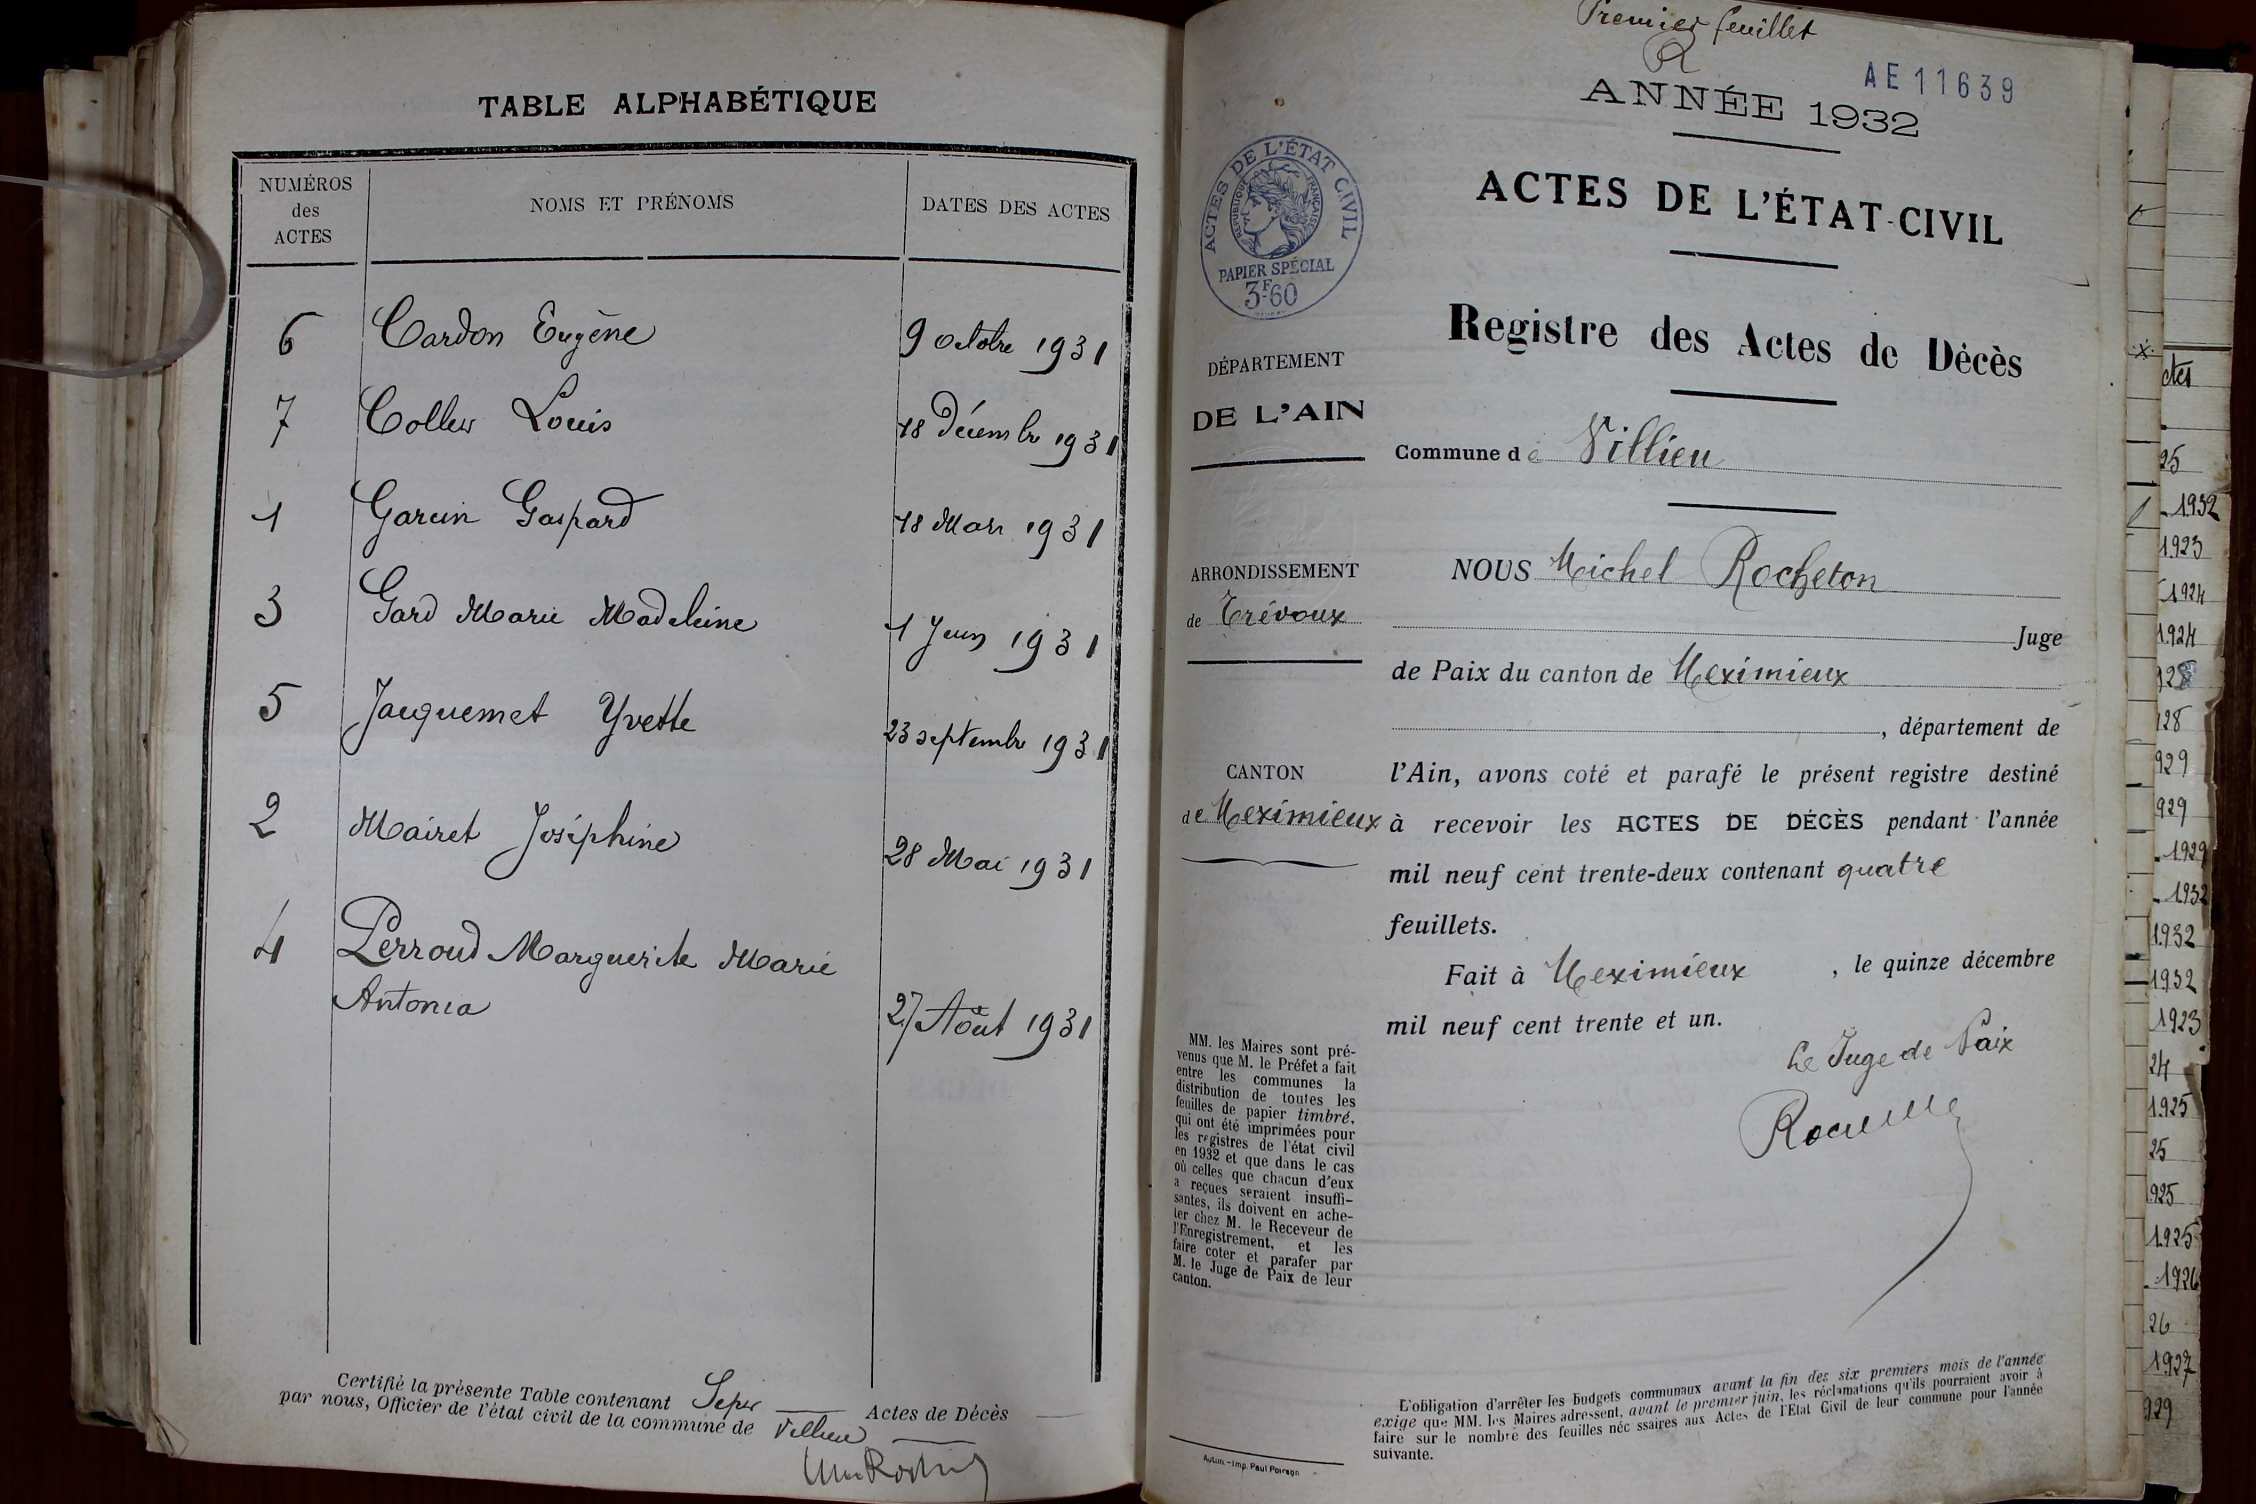 TABLE ALPHABÉTIQUE
NUMÉROS
des
ACTES
NOMS ET PRÉNOMS
DATES DES ACTES
6 Cardon Eugène 9 octobre 1931
7 Collet Louis 18 Décembre 1931
1 Garcin Gaspard 18 Mars 1931
3 Gard Marie Madeleine 1 Juin 1931
5 Jacquemet Yvette 23 septembre 1931
2 Mairet Joséphine 28 Mai 1931
4 Perroud Marguerite Marie
Antonia 27 Août 1931
Certifié la présente Table contenant Sept Actes de Décès
par nous, Officier de l'état civil de la commune de Villieu
Premier feuillet
AE 11639
ANNÉE 1932
ACTES DE L'ÉTAT-CIVIL
ACTES DE L'ÉTAT CIVIL
RÉPUBLIQUE FRANÇAISE
PAPIER SPÉCIAL
3F.60
Registre des Actes de Décès
DÉPARTEMENT
DE L'AIN
Commune de Villieu
ARRONDISSEMENT
de Trévoux
CANTON
de Meximieux
NOUS Michel Rocheton
Juge
de Paix du canton de Meximieux
, département de
l'Ain, avons coté et parafé le présent registre destiné
à recevoir les ACTES DE DÉCÈS pendant l'année
mil neuf cent trente-deux contenant quatre
feuillets.
Fait à Meximieux, le quinze décembre
mil neuf cent trente et un.
Le Juge de Paix
MM. les Maires sont pré-
venus que M. le Préfet a fait
entre les communes la
distribution de toutes les
feuilles de papier timbré,
qui ont été imprimées pour
les registres de l'état civil
en 1932 et que dans le cas
où celles que chacun d'eux
a reçues seraient insuffi-
santes, ils doivent en ache-
ter chez M. le Receveur de
l'Enregistrement, et les
faire coter et parafer par
M. le Juge de Paix de leur
canton.
L'obligation d'arrêter les budgets communaux avant la fin des six premiers mois de l'année
exige que MM. les Maires adressent, avant le premier juin, les réclamations qu'ils pourraient avoir à
faire sur le nombre des feuilles néc ssaires aux Actes de l'Etat Civil de leur commune pour l'année
suivante.
Autun. - Imp. Paul Poirson
ctes
25
1932
1923
1924
1924
928
128
929
929
1929
1932
1932
1932
1923
24
1925
25
925
1925
1926
26
1927
929